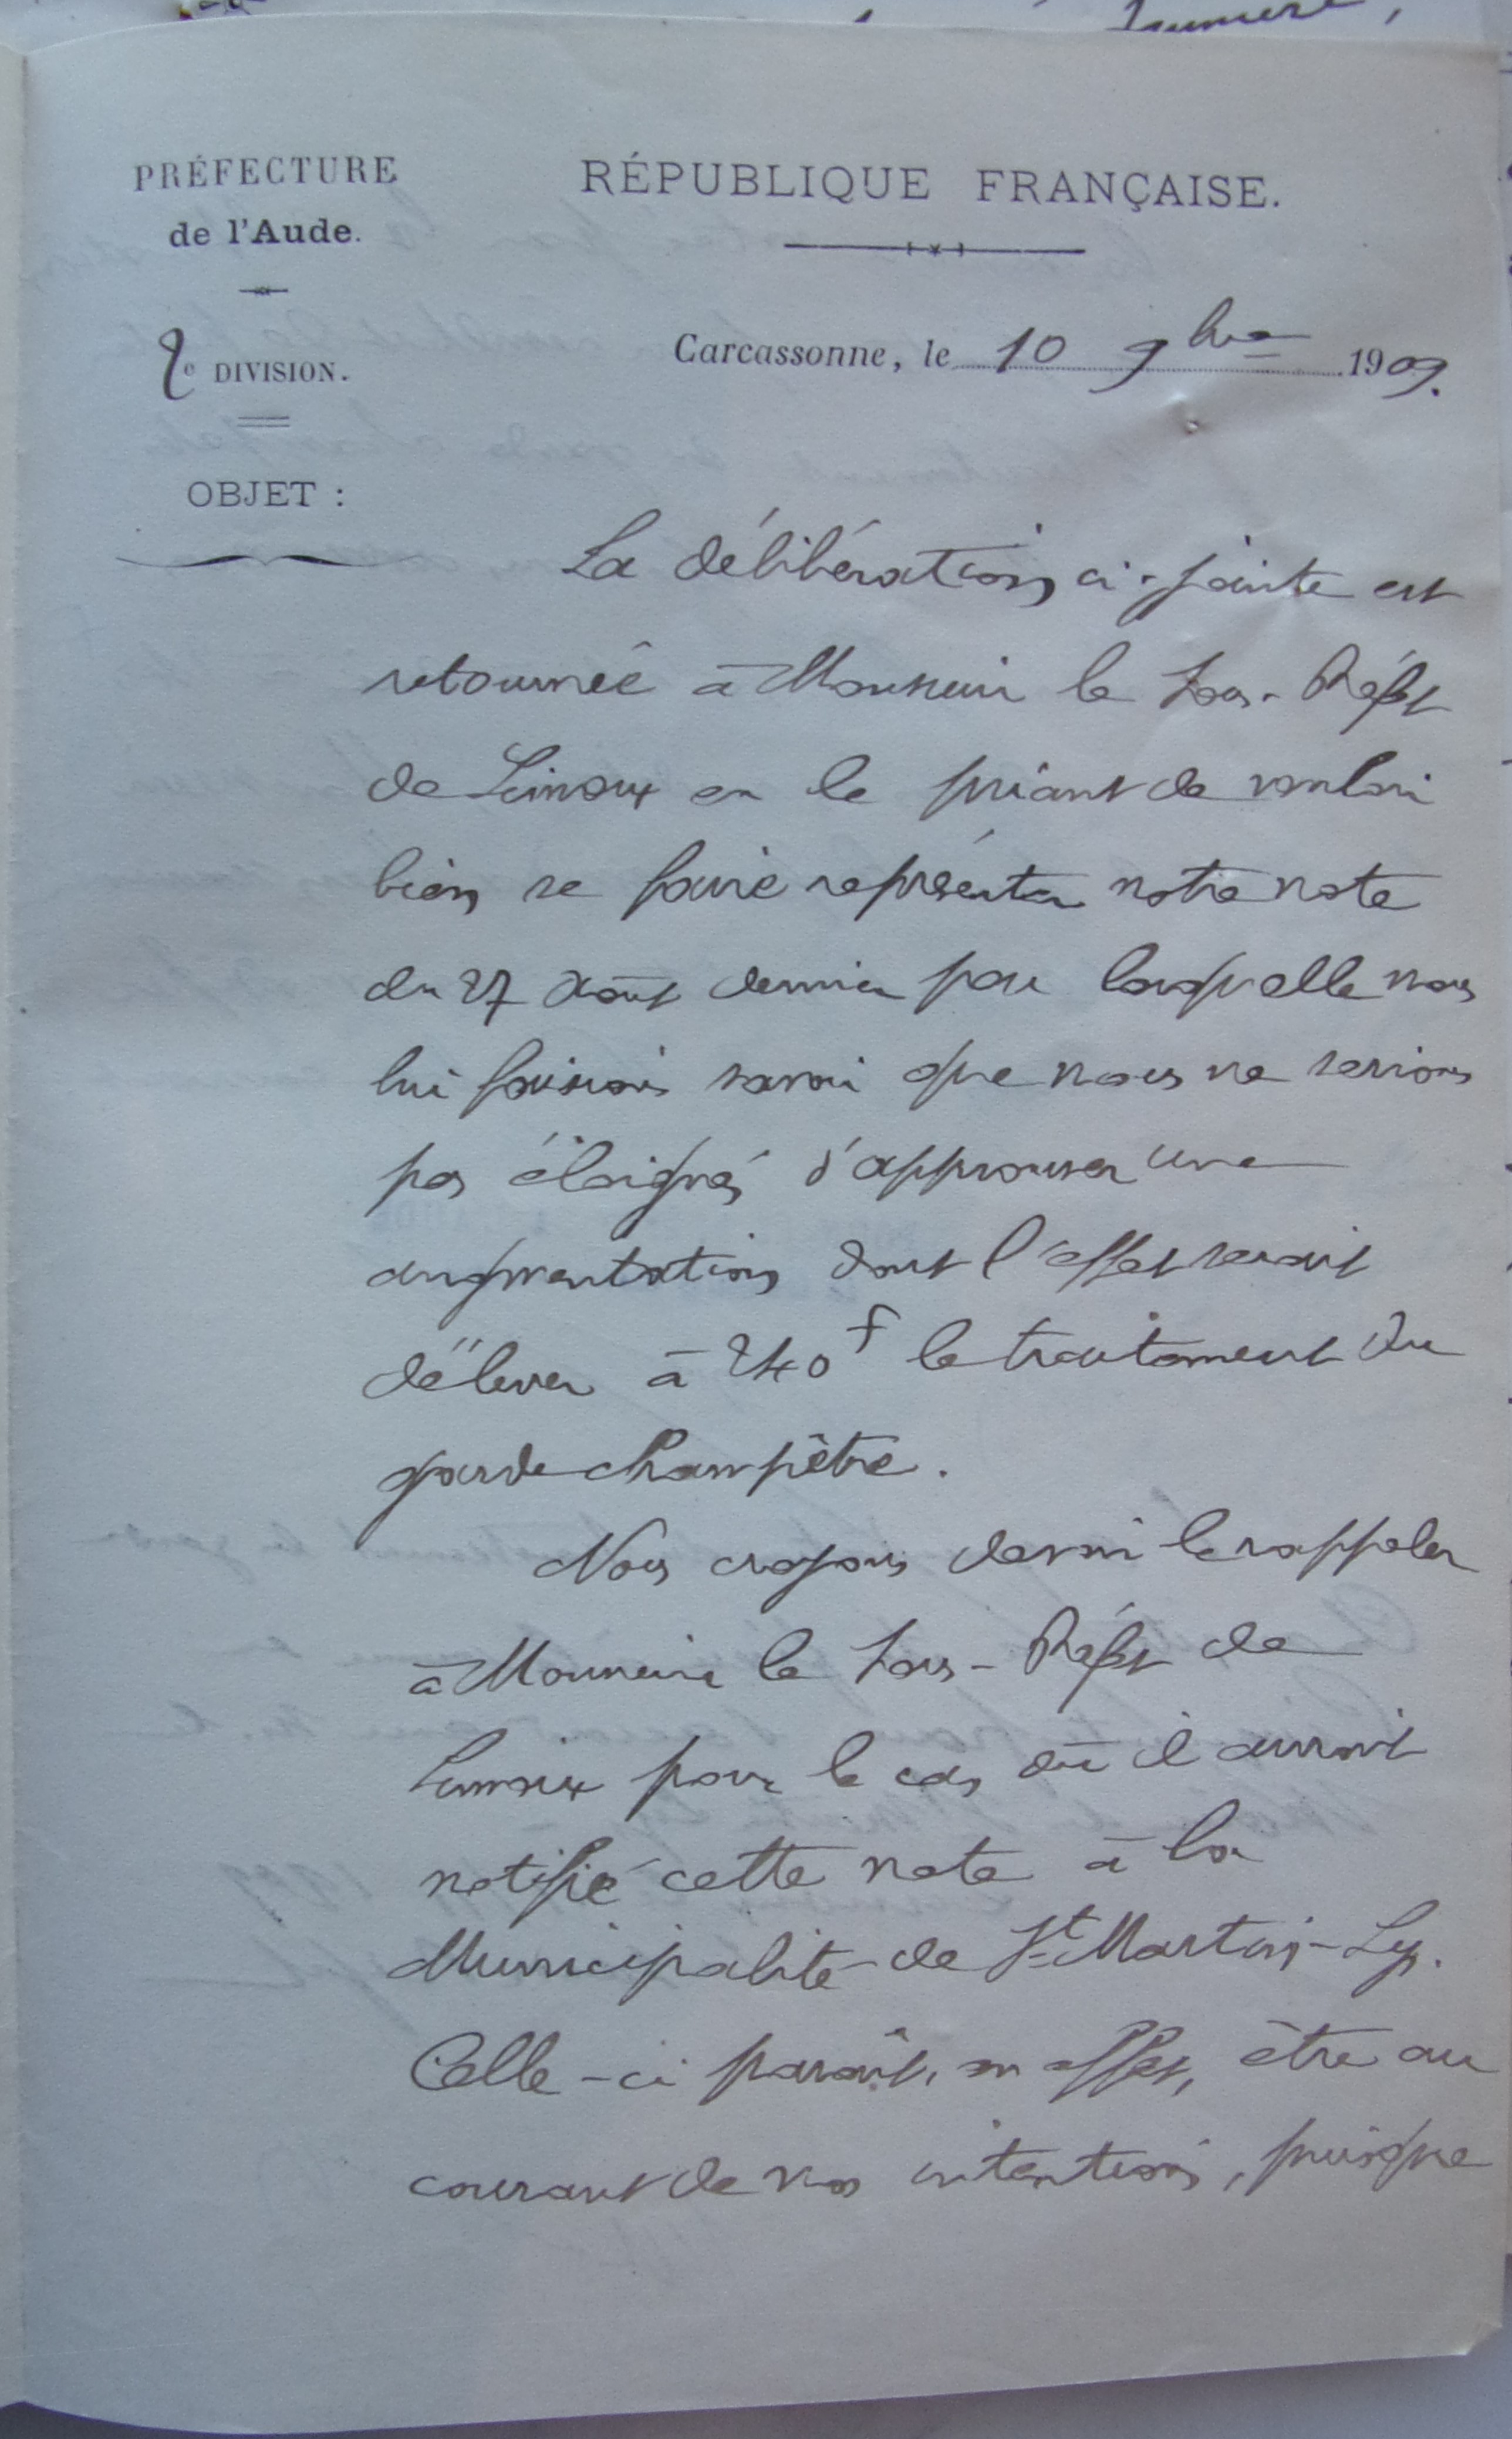 PRÉFECTURE
de l'Aude.
RÉPUBLIQUE FRANÇAISE.
2e DIVISION.
Carcassonne, le 10 9bre 1909.
OBJET :
La délibération ci-jointe est
retournée à Monsieur le Sous-Préfet
de Limoux en le priant de vouloir
bien se faire représenter notre note
du 27 août dernier par laquelle nous
lui faisions savoir que nous ne serions
pas éloignés d'approuver une
augmentation dont l'effet serait
d'élever à 240f le traitement du
garde champêtre.
Nous croyons devoir le rappeler
à Monsieur le Sous-Préfet de
Limoux pour le cas où il aurait
notifié cette note à la
Municipalité de St Martin-Lys.
Celle-ci paraît, en effet, être au
courant de nos intentions, puisque